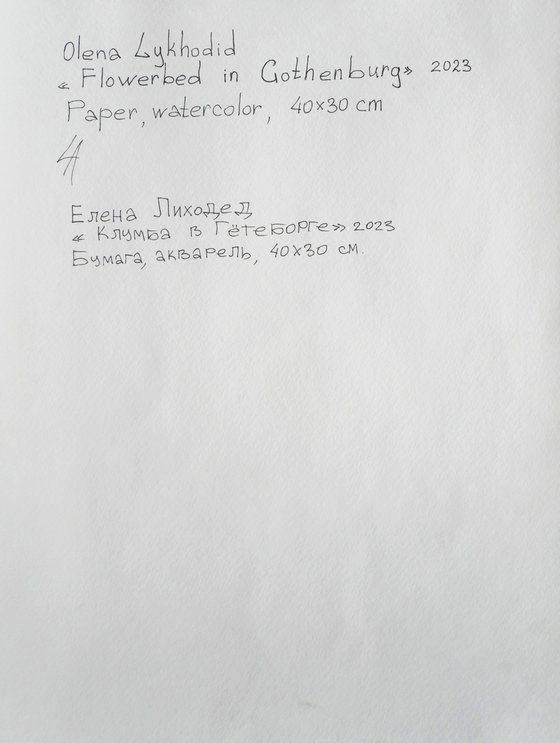 Olena Lykhodid
« Flowerbed in Gothenburg» 2023
Paper, watercolor, 40×30 cm
Елена Лиходед
« Клумба в Гётеборге» 2023
Бумага, акварель, 40×30 см.